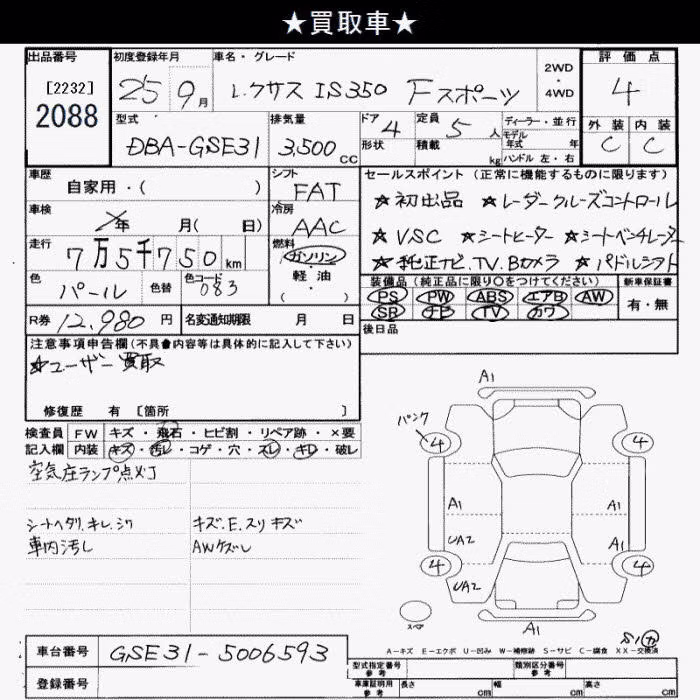 ★買取車★
出品番号 初度登録年月 車名・グレード 2WD・4WD 評価点
[2232] 2088 25 9月 レクサス IS350 Fスポーツ 4
型式 排気量 ドア 4 定員 5人 ディーラー・並行 外装 内装
DBA-GSE31 3,500cc 形状 積載 kg モデル年式 年 C C
ハンドル 左・右
車歴 シフト セールスポイント (正常に機能するものに限ります)
自家用・( ) FAT ★初出品 ★レーダークルーズコントロール
車検 年 月( 日) 冷房 AAC ★VSC ★シートヒーター ★シートベンチレーター
走行 7万5千750km 燃料 ガソリン・軽油・( ) ★純正ナビ.TV.Bカメラ ★パドルシフト
色 パール 色替 色コード 083 装備品 (純正品に限り○をつけてください) 新車保証書
PS PW ABS エアB AW 有・無
SR ナビ TV カワ
R券 12,980円 名変通知期限 月 日 後日品
注意事項申告欄(不具合内容等は具体的に記入して下さい)
★ユーザー買取
修復歴 有 [箇所 ]
検査員 FW キズ・飛石・ヒビ割・リペア跡・×要
記入欄 内装 キズ・汚レ・コゲ・穴・スレ・キレ・破レ
空気圧ランプ点灯
シートヘタリ.キレ.シワ キズ.E.スリキズ
車内汚レ AWケズレ
A1
パンク
4 4
A1 A1
UA2 A1
4 4
UA2
スペア
A1
A-キズ E-エクボ U-凹み W-補修跡 S-サビ C-腐食 XX-交換済
車台番号 GSE31-5006593
登録番号
型式指定番号 参考 類別区分番号 参考
車庫証明用 参考 長さ cm 幅 cm 高さ cm